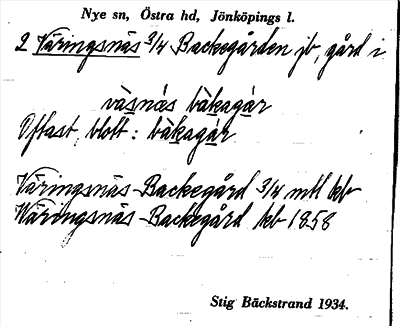 Nye sn, Östra hd, Jönköpings l.
2 Väringsnäs 3/4 Backegården jb, gård i
väsnäs bàkagàr
Oftast blott: bàkagàr
Väringsnäs Backegård 3/4 mtl kb
Wäringsnäs Backegård kb 1858
Stig Bäckstrand 1934.